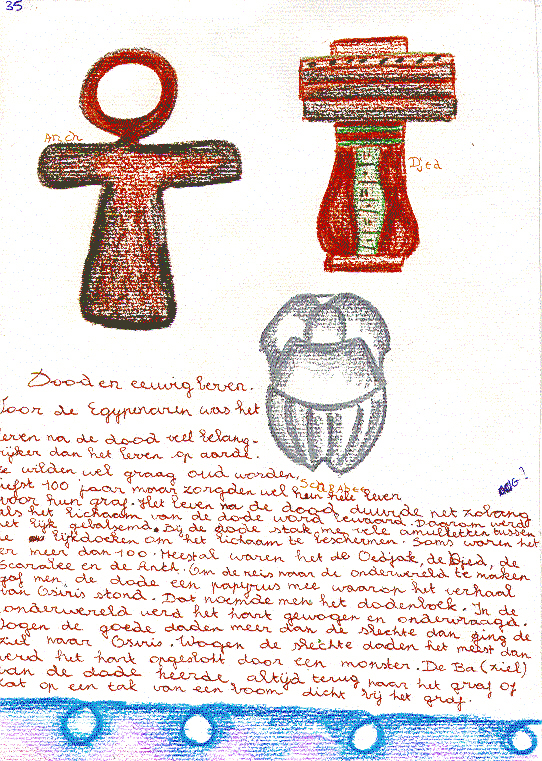 35
Anch
Djed
Scarabee
Dood en eeuwig leven.
Voor de Egyptenaren was het
leven na de dood veel belang-
rijker dan het leven op aarde.
Ze wilden wel graag oud worden,
liefst 100 jaar maar zorgden wel hun hele leven
voor hun graf. Het leven na de dood duurde net zolang
als het lichaam van de dode word bewaard. Daarom werd
het lijk gebalsemd. Bij de dode stak men vele amuletten tussen
de lijkdoeken om het lichaam te beschermen. Soms waren het
er meer dan 100. Meestal waren het de Oedjat, de Djed, de
Scarabee en de Anch. Om de reis naar de onderwereld te maken
gaf men de dode een papyrus mee waarop het verhaal
van Osiris stond. Dat noemde men het dodenboek. In de
onderwereld werd het hart gewogen en ondervraagd.
Wogen de goede daden meer dan de slechte dan ging de
ziel naar Osiris. Wogen de slechte daden het meest dan
werd het hart opgeslokt door een monster. De Ba (ziel)
van de dode keerde altijd terug naar het graf of
zat op een tak van een boom dicht bij het graf.